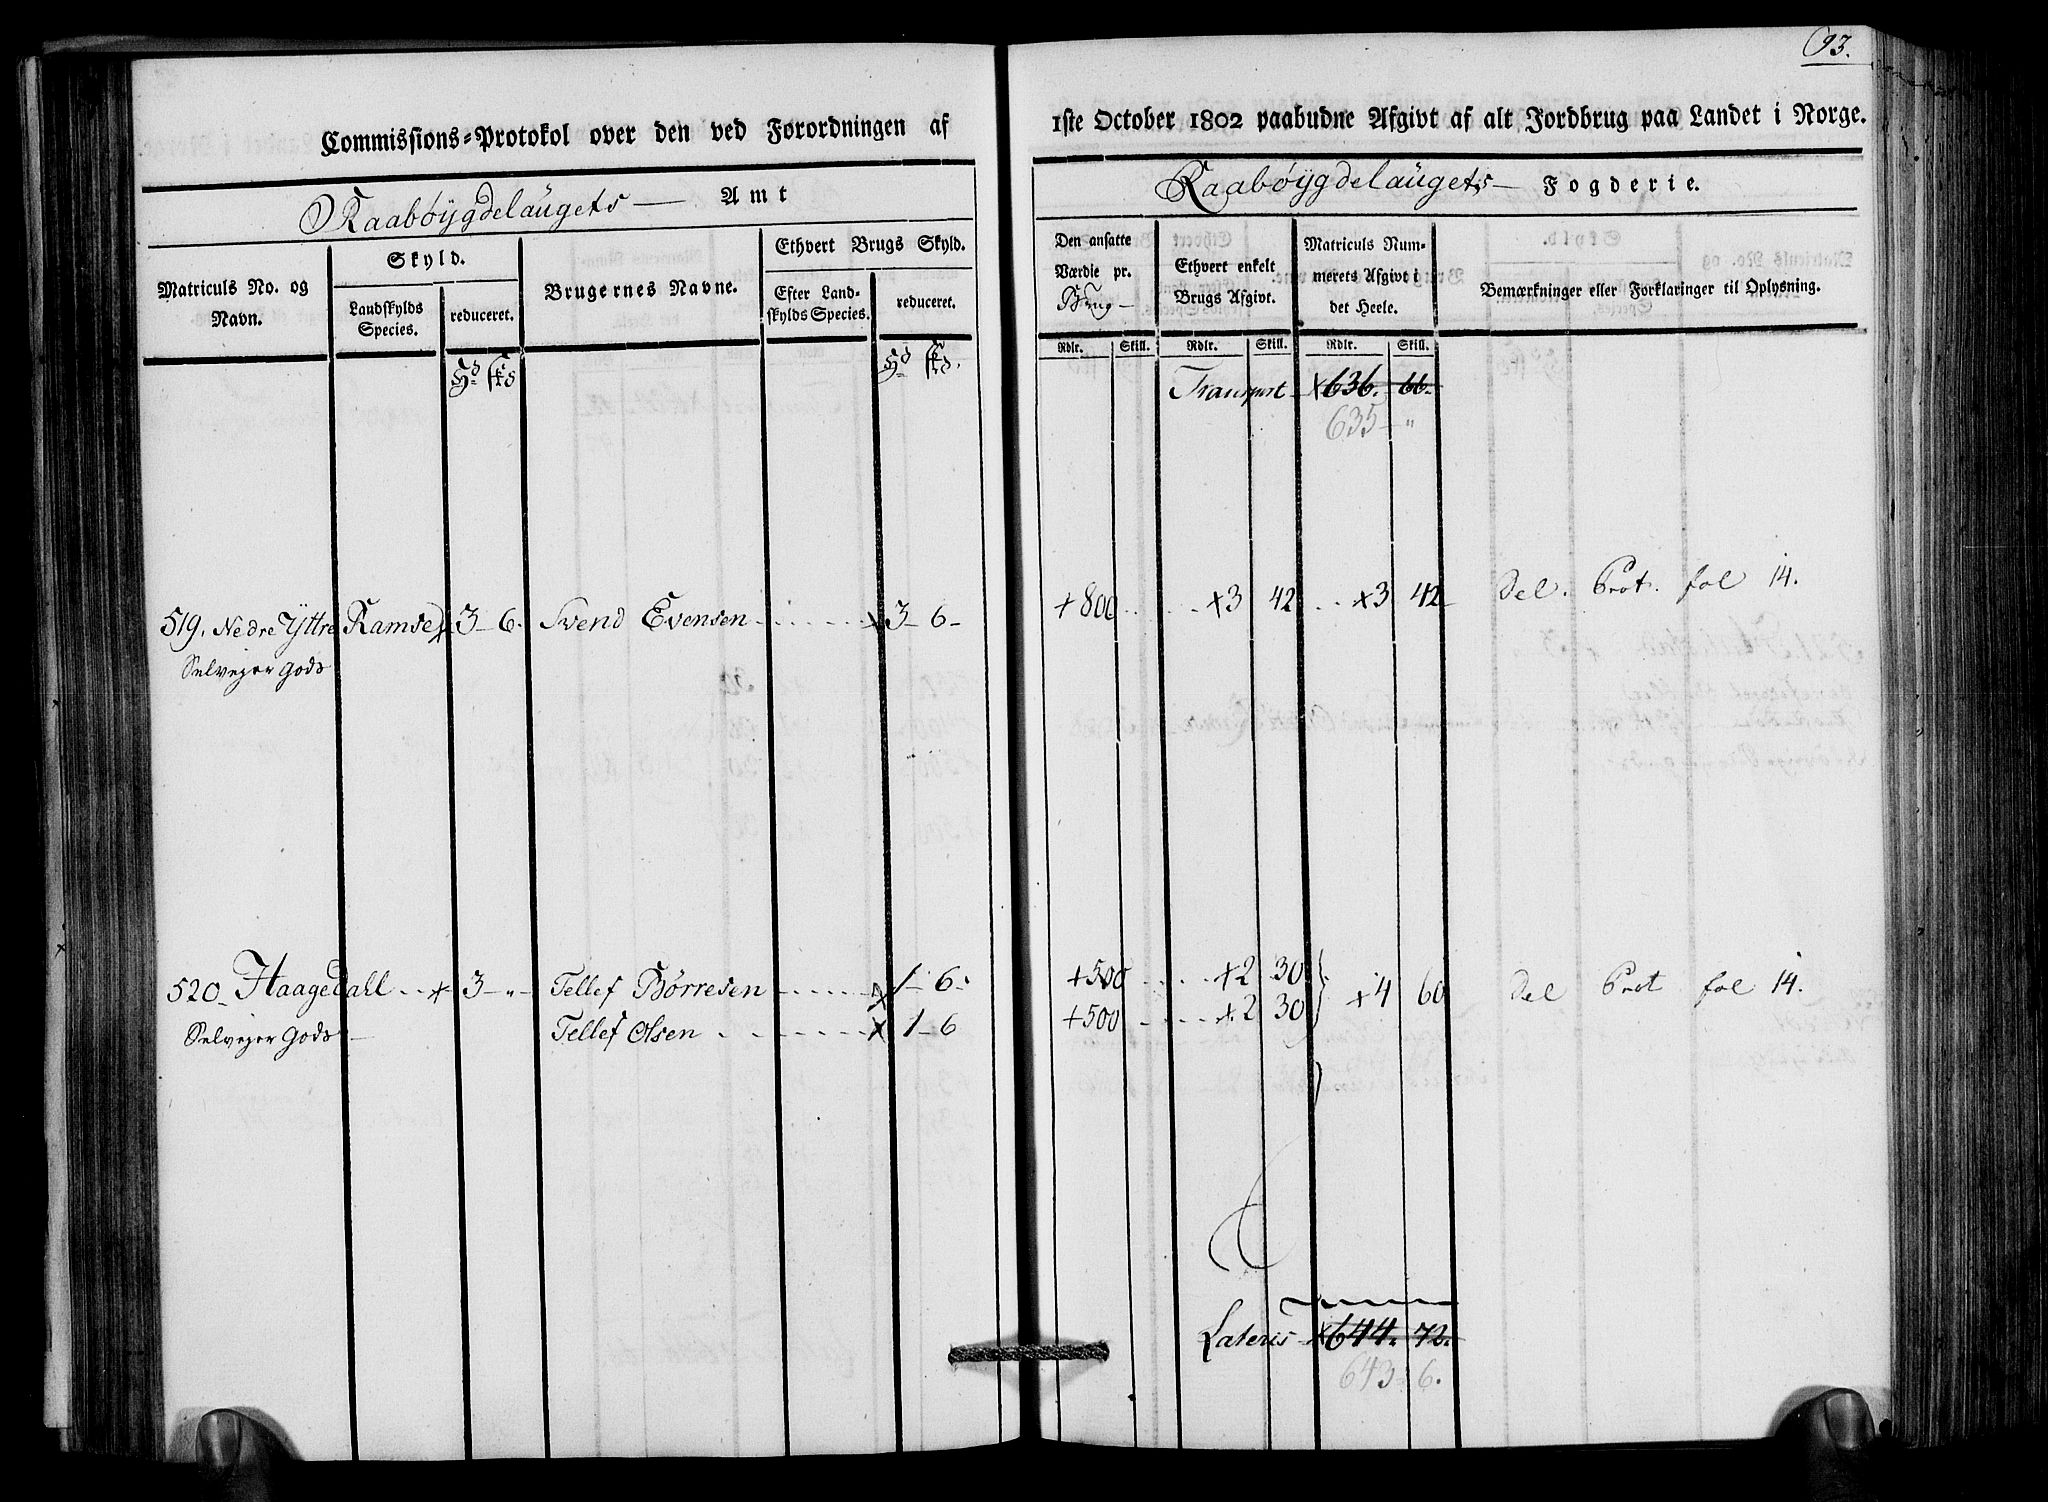 93.
Commissions-Protokol over den ved Forordningen af
1ste October 1802 paabudne Afgivt af alt Jordbrug paa Landet i Norge.
Raabøygdelaugets Amt
Raabøygdelaugets Fogderie.
Matriculs No. og Navn.
Skyld.
Landskylds Species.
reduceret.
Brugernes Navne.
Ethvert Brugs Skyld.
Efter Landskylds Species.
reduceret.
Den ansatte Værdie pr. Brug
Ethvert enkelt Brugs Afgivt.
Matriculs Nummerets Afgivt i det Heele.
Bemærkninger eller Forklaringer til Oplysning.
Rdlr. Skill. Rdlr. Skill. Rdlr. Skill.
Transport x 636. 66.
635 - "
519. Nedre Yttre Ramse x 3 - 6. Svend Evensen x 3 - 6 - + 800 x 3 42 x 3 42 Del. Prot. fol 14.
Selveyer Gods
520 - Haagedahl x 3 - " - Tellef Børresen x 1 - 6. + 500 x 2 30 x 4 60 Del Prot fol 14.
Selveyer Gods Tellef Olsen x 1 - 6 + 500 x 2 30
Lateris x 644. 72.
643 6.